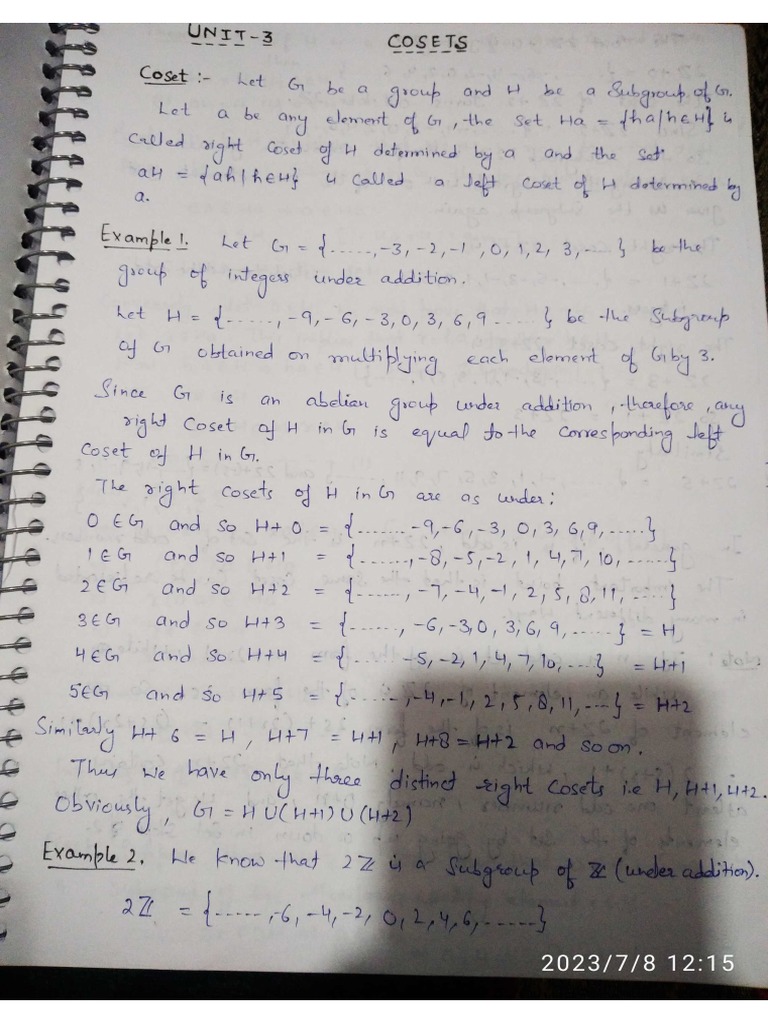 UNIT-3
COSETS
Coset :- Let G be a group and H be a Subgroup of G.
Let a be any element of G, the set Ha = {ha/h∈H} is
called right coset of H determined by a and the set
aH = {ah/h∈H} is called a left coset of H determined by
a.
Example 1. Let G = {......,-3,-2,-1,0,1,2,3,....} be the
group of integers under addition.
Let H = {......,-9,-6,-3,0,3,6,9......} be the Subgroup
of G obtained on multiplying each element of G by 3.
Since G is an abelian group under addition, therefore, any
right Coset of H in G is equal to the corresponding left
Coset of H in G.
The right cosets of H in G are as under:
0∈G and so H+0 = {......-9,-6,-3,0,3,6,9,.....}
1∈G and so H+1 = {......,-8,-5,-2,1,4,7,10,......}
2∈G and so H+2 = {......,-7,-4,-1,2,5,8,11,......}
3∈G and so H+3 = {......,-6,-3,0,3,6,9,......} = H
4∈G and so H+4 = {...-5,-2,1,4,7,10,....} = H+1
5∈G and so H+5 = {......,-4,-1,2,5,8,11,...} = H+2
Similarly H+6 = H, H+7 = H+1, H+8 = H+2 and so on.
Thus we have only three distinct right Cosets i.e H, H+1, H+2.
Obviously, G = H∪(H+1)∪(H+2)
Example 2. We know that 2ℤ is a Subgroup of ℤ (under addition).
2ℤ = {.....,-6,-4,-2,0,2,4,6,......}
2023/7/8 12:15